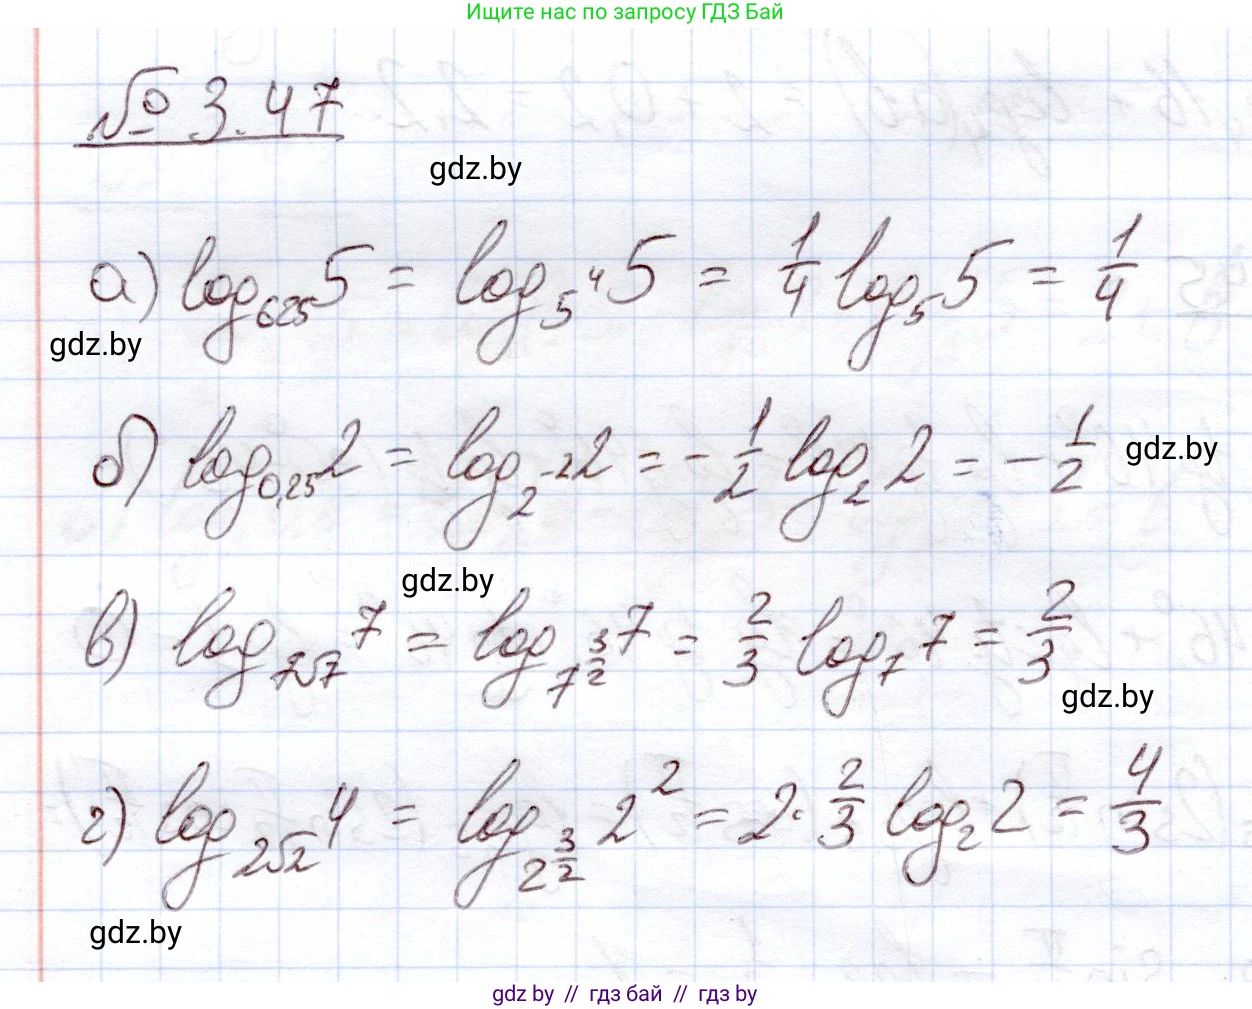 Ищите нас по запросу ГДЗ Бай
№ 3.47
gdz.by
а) log₆₂₅ 5 = log_{5^4} 5 = 1/4 log₅ 5 = 1/4
gdz.by
б) log_{0,25} 2 = log_{2^{-2}} 2 = - 1/2 log₂ 2 = - 1/2
gdz.by
gdz.by
в) log_{7√7} 7 = log_{7^{3/2}} 7 = 2/3 log₇ 7 = 2/3
gdz.by
г) log_{2√2} 4 = log_{2^{3/2}} 2² = 2 · 2/3 log₂ 2 = 4/3
gdz.by
gdz by // гдз бай // гдз by